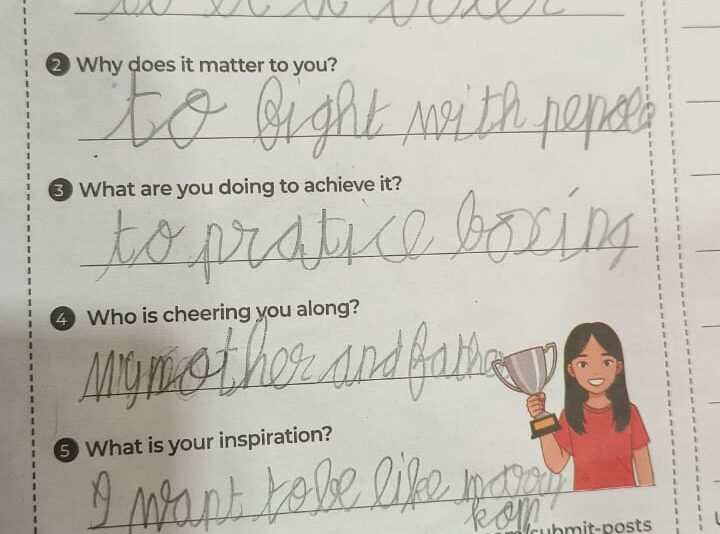 to be a boxer
2 Why does it matter to you?
to fight with pepoel
3 What are you doing to achieve it?
to pratice boxing
4 Who is cheering you along?
My mother and father
5 What is your inspiration?
I want to be like marry
kom
/submit-posts